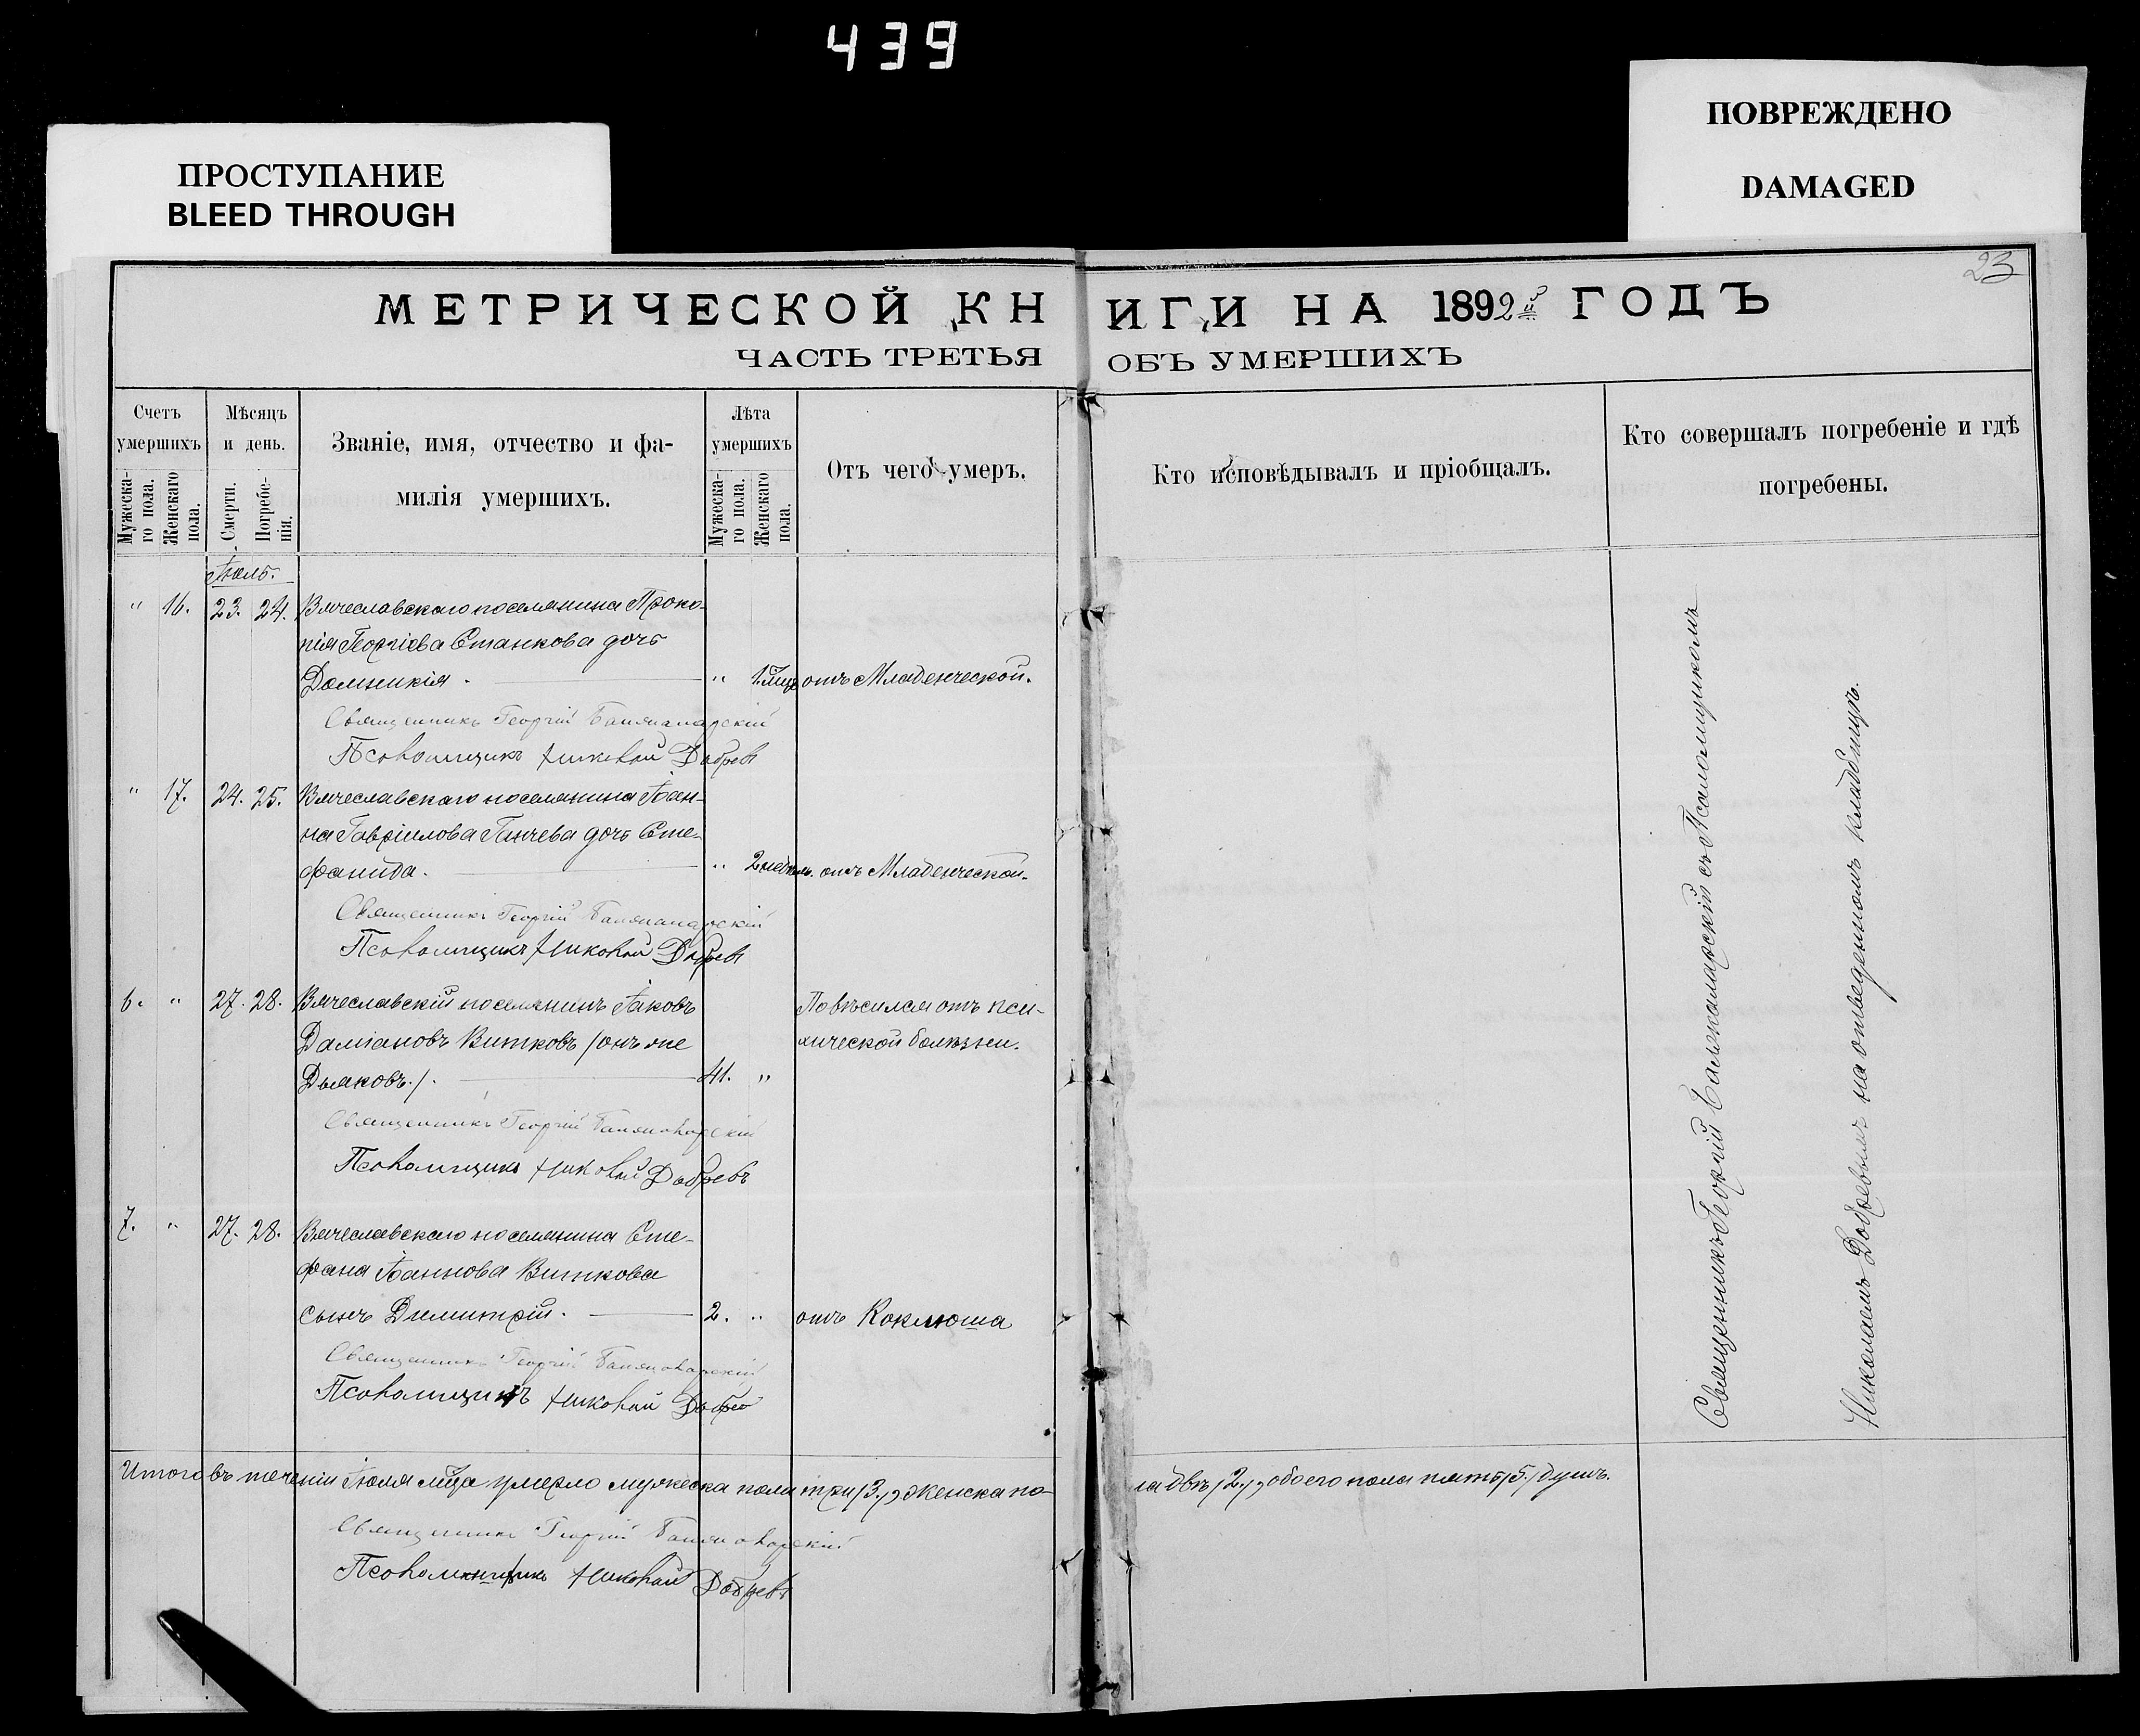 439
ПРОСТУПАНИЕ
BLEED THROUGH
ПОВРЕЖДЕНО
DAMAGED
23
МЕТРИЧЕСКОЙ КНИГИ НА 1892й ГОДЪ
ЧАСТЬ ТРЕТЬЯ ОБЪ УМЕРШИХЪ
Счетъ умершихъ
Мужеска-го пола.
Женскаго пола.
Мѣсяцъ и день.
Смерти.
Погребе-нія.
Званіе, имя, отчество и фа-
милія умершихъ.
Лѣта умершихъ
Мужеска-го пола.
Женскаго пола.
Отъ чего умеръ.
Кто исповѣдывалъ и пріобщалъ.
Кто совершалъ погребеніе и гдѣ
погребены.
Іюль.
" 16. 23. 24. Вячеславскаго поселянина Проко-
пія Георгіева Станкова дочь
Домникія. " 1 мца отъ Младенческой.
Священникъ Георгій
Псаломщикъ Николай Добревъ
" 17. 24. 25. Вячеславскаго поселянина Іоан-
на Гавріилова Ганчева дочь Сте-
фанида. " 2 недѣль. отъ Младенческой.
Священникъ Георгій
Псаломщикъ Николай Добревъ
6. " 27. 28. Вячеславскій поселянинъ Іаковъ Повѣсился отъ пси-
Даміановъ Витковъ /онъ же хической болѣзни.
Дьяковъ./. 41. "
Священникъ Георгій
Псаломщикъ Николай Добревъ
7. " 27. 28. Вячеславскаго поселянина Сте-
фана Іоаннова Виткова
сынъ Димитрій. 2. " отъ Коклюша
Священникъ Георгій
Псаломщикъ Николай Добрев
Итого въ теченіи Іюля мѣца умерло мужеска пола три /3./, женска по-
ла двѣ /2./, обоего пола пять /5./ душъ.
Священникъ Георгій
Псаломщикъ Николай Добревъ
Священникъ Георгій съ Псаломщикомъ
Николаемъ Добревымъ на отведенномъ кладбищѣ.